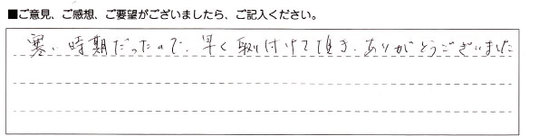 ■ご意見、ご感想、ご要望がございましたら、ご記入ください。
寒い時期だったので、早く取り付けて頂き、ありがとうございました